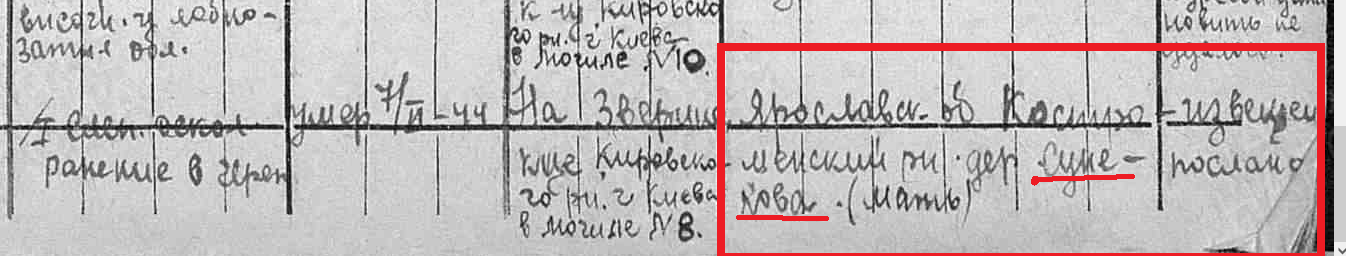 височ. и лобно-
затыл обл.
к-це Кировско
го рн. г Киева
в могиле N10.
новить не
удалось.
/I слеп. оскол.
ранение в череп
умер 7/II-44
На Зверинс
кце Кировско-
го рн. г Киева
в могиле N8.
Ярославск. об Костро-
менский рн. дер Суне-
кова. (мать)
извещен
послано